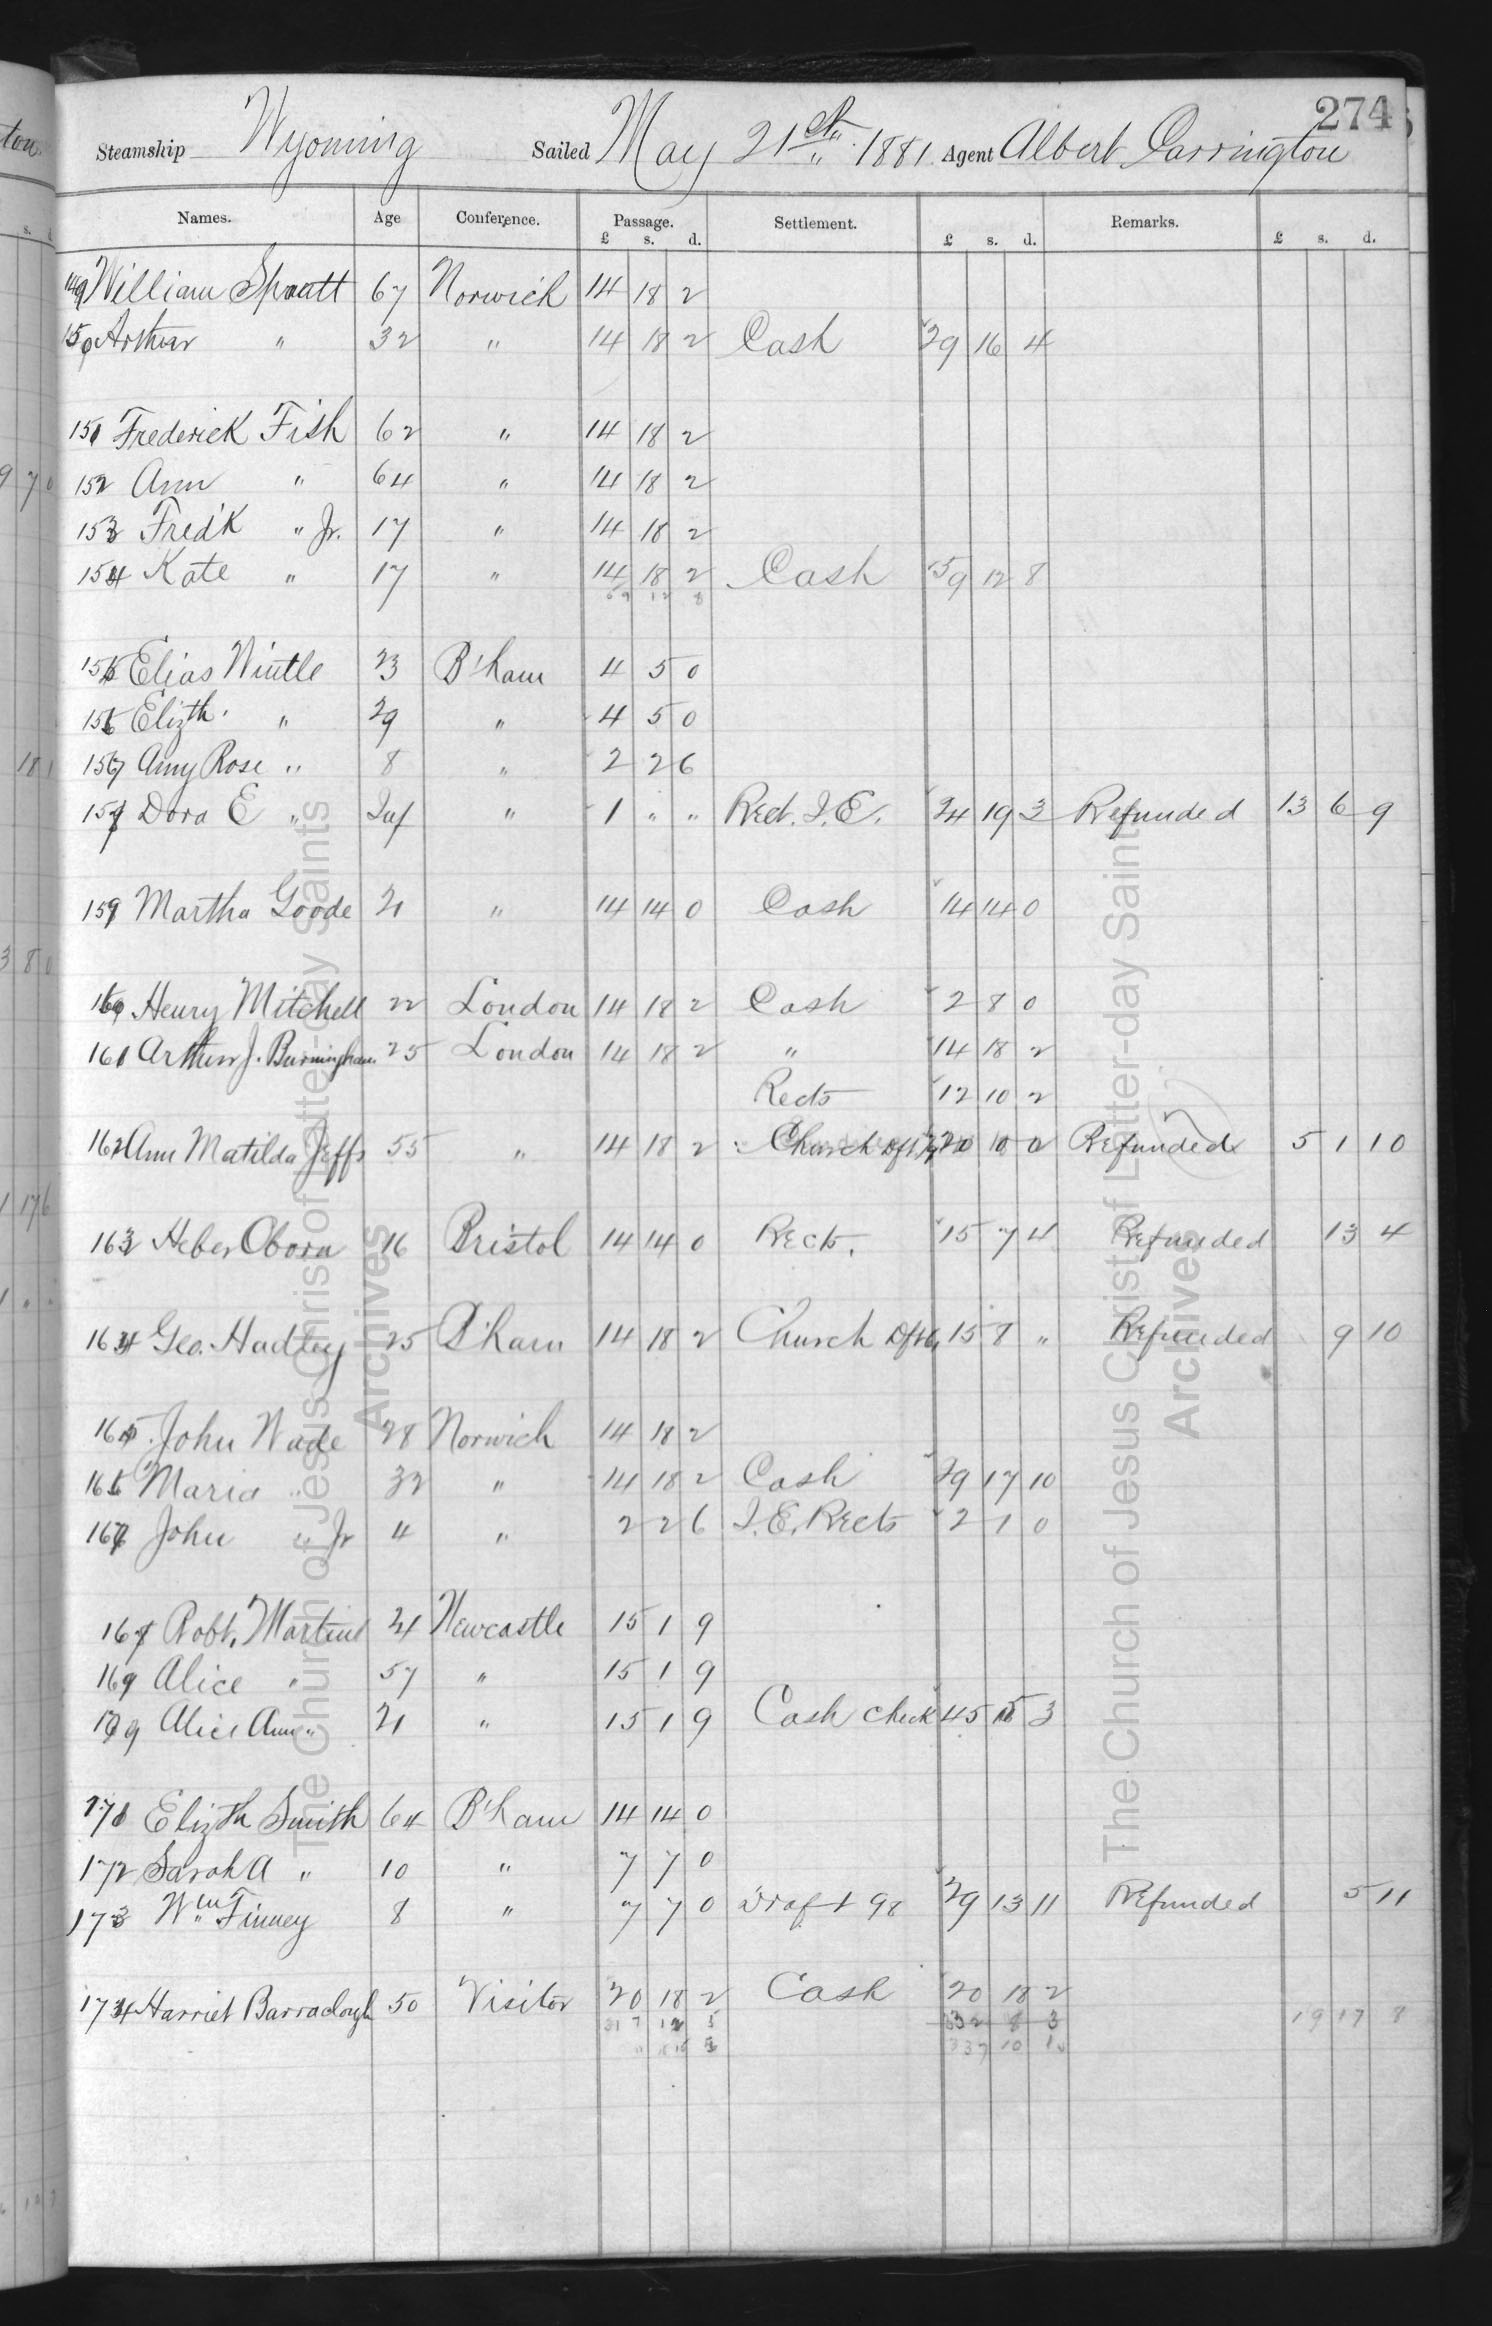 274
Steamship Wyoming Sailed May 21st 1881 Agent Albert Carrington
Names. Age Conference. Passage. £ s. d. Settlement. £ s. d. Remarks. £ s. d.
149 William Spratt 67 Norwich 14 18 2
150 Arthur " 32 " 14 18 2 Cash 29 16 4
151 Frederick Fish 62 " 14 18 2
152 Ann " 64 " 14 18 2
153 Fred'k " Jr. 17 " 14 18 2
154 Kate " 17 " 14 18 2 Cash 59 12 8
155 Elias Wintle 23 B'ham 4 5 0
156 Elizth. " 29 " 4 5 0
157 Amy Rose " 8 " 2 2 6
158 Dora E " Inf " 1 " " Rect. I.E. 24 19 3 Refunded 13 6 9
159 Martha Goode 21 " 14 14 0 Cash 14 14 0
160 Henry Mitchell 22 London 14 18 2 Cash 2 8 0
161 Arthur J. Burningham 25 London 14 18 2 " 14 18 2
Rects 12 10 2
162 Ann Matilda Jeffs 55 " 14 18 2 Church 20 0 0 Refunded 5 1 10
163 Heber Oborn 16 Bristol 14 14 0 Rects. 15 7 4 Refunded 13 4
164 Geo. Hadley 25 B'ham 14 18 2 Church 15 8 " Refunded 9 10
165 John Wade 28 Norwich 14 18 2
166 Maria " 32 " 14 18 2 Cash 29 17 10
167 John " Jr 4 " 2 2 6 I.E. Rects 2 1 0
168 Robt. Martin 21 Newcastle 15 1 9
169 Alice " 57 " 15 1 9
170 Alice Ann " 21 " 15 1 9 Cash check 45 5 3
171 Elizth Smith 64 B'ham 14 14 0
172 Sarah A " 10 " 7 7 0
173 Wm Finney 8 " 7 7 0 Draft 98 29 13 11 Refunded 5 11
174 Harriet Barraclough 50 Visitor 20 18 2 Cash 20 18 2
317 12 5 332 8 3 19 17 8
337 10
The Church of Jesus Christ of Latter-day Saints
Archives
The Church of Jesus Christ of Latter-day Saints
Archives